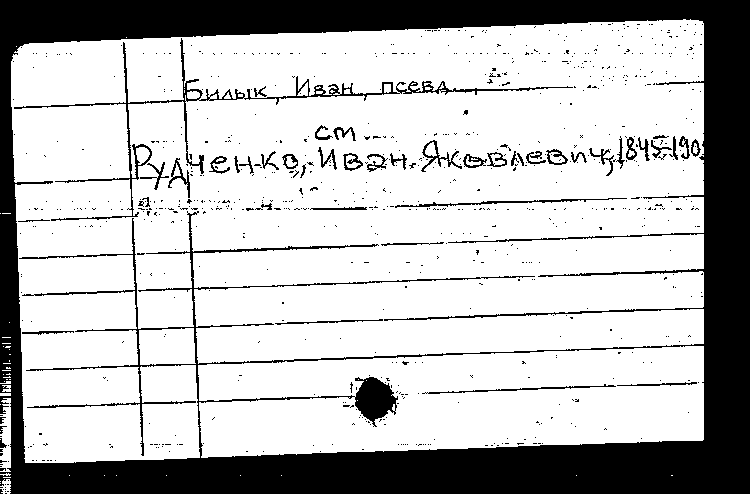 Билык, Иван, псевд.
см.
Рудченко, Иван Яковлевич, 1845-190